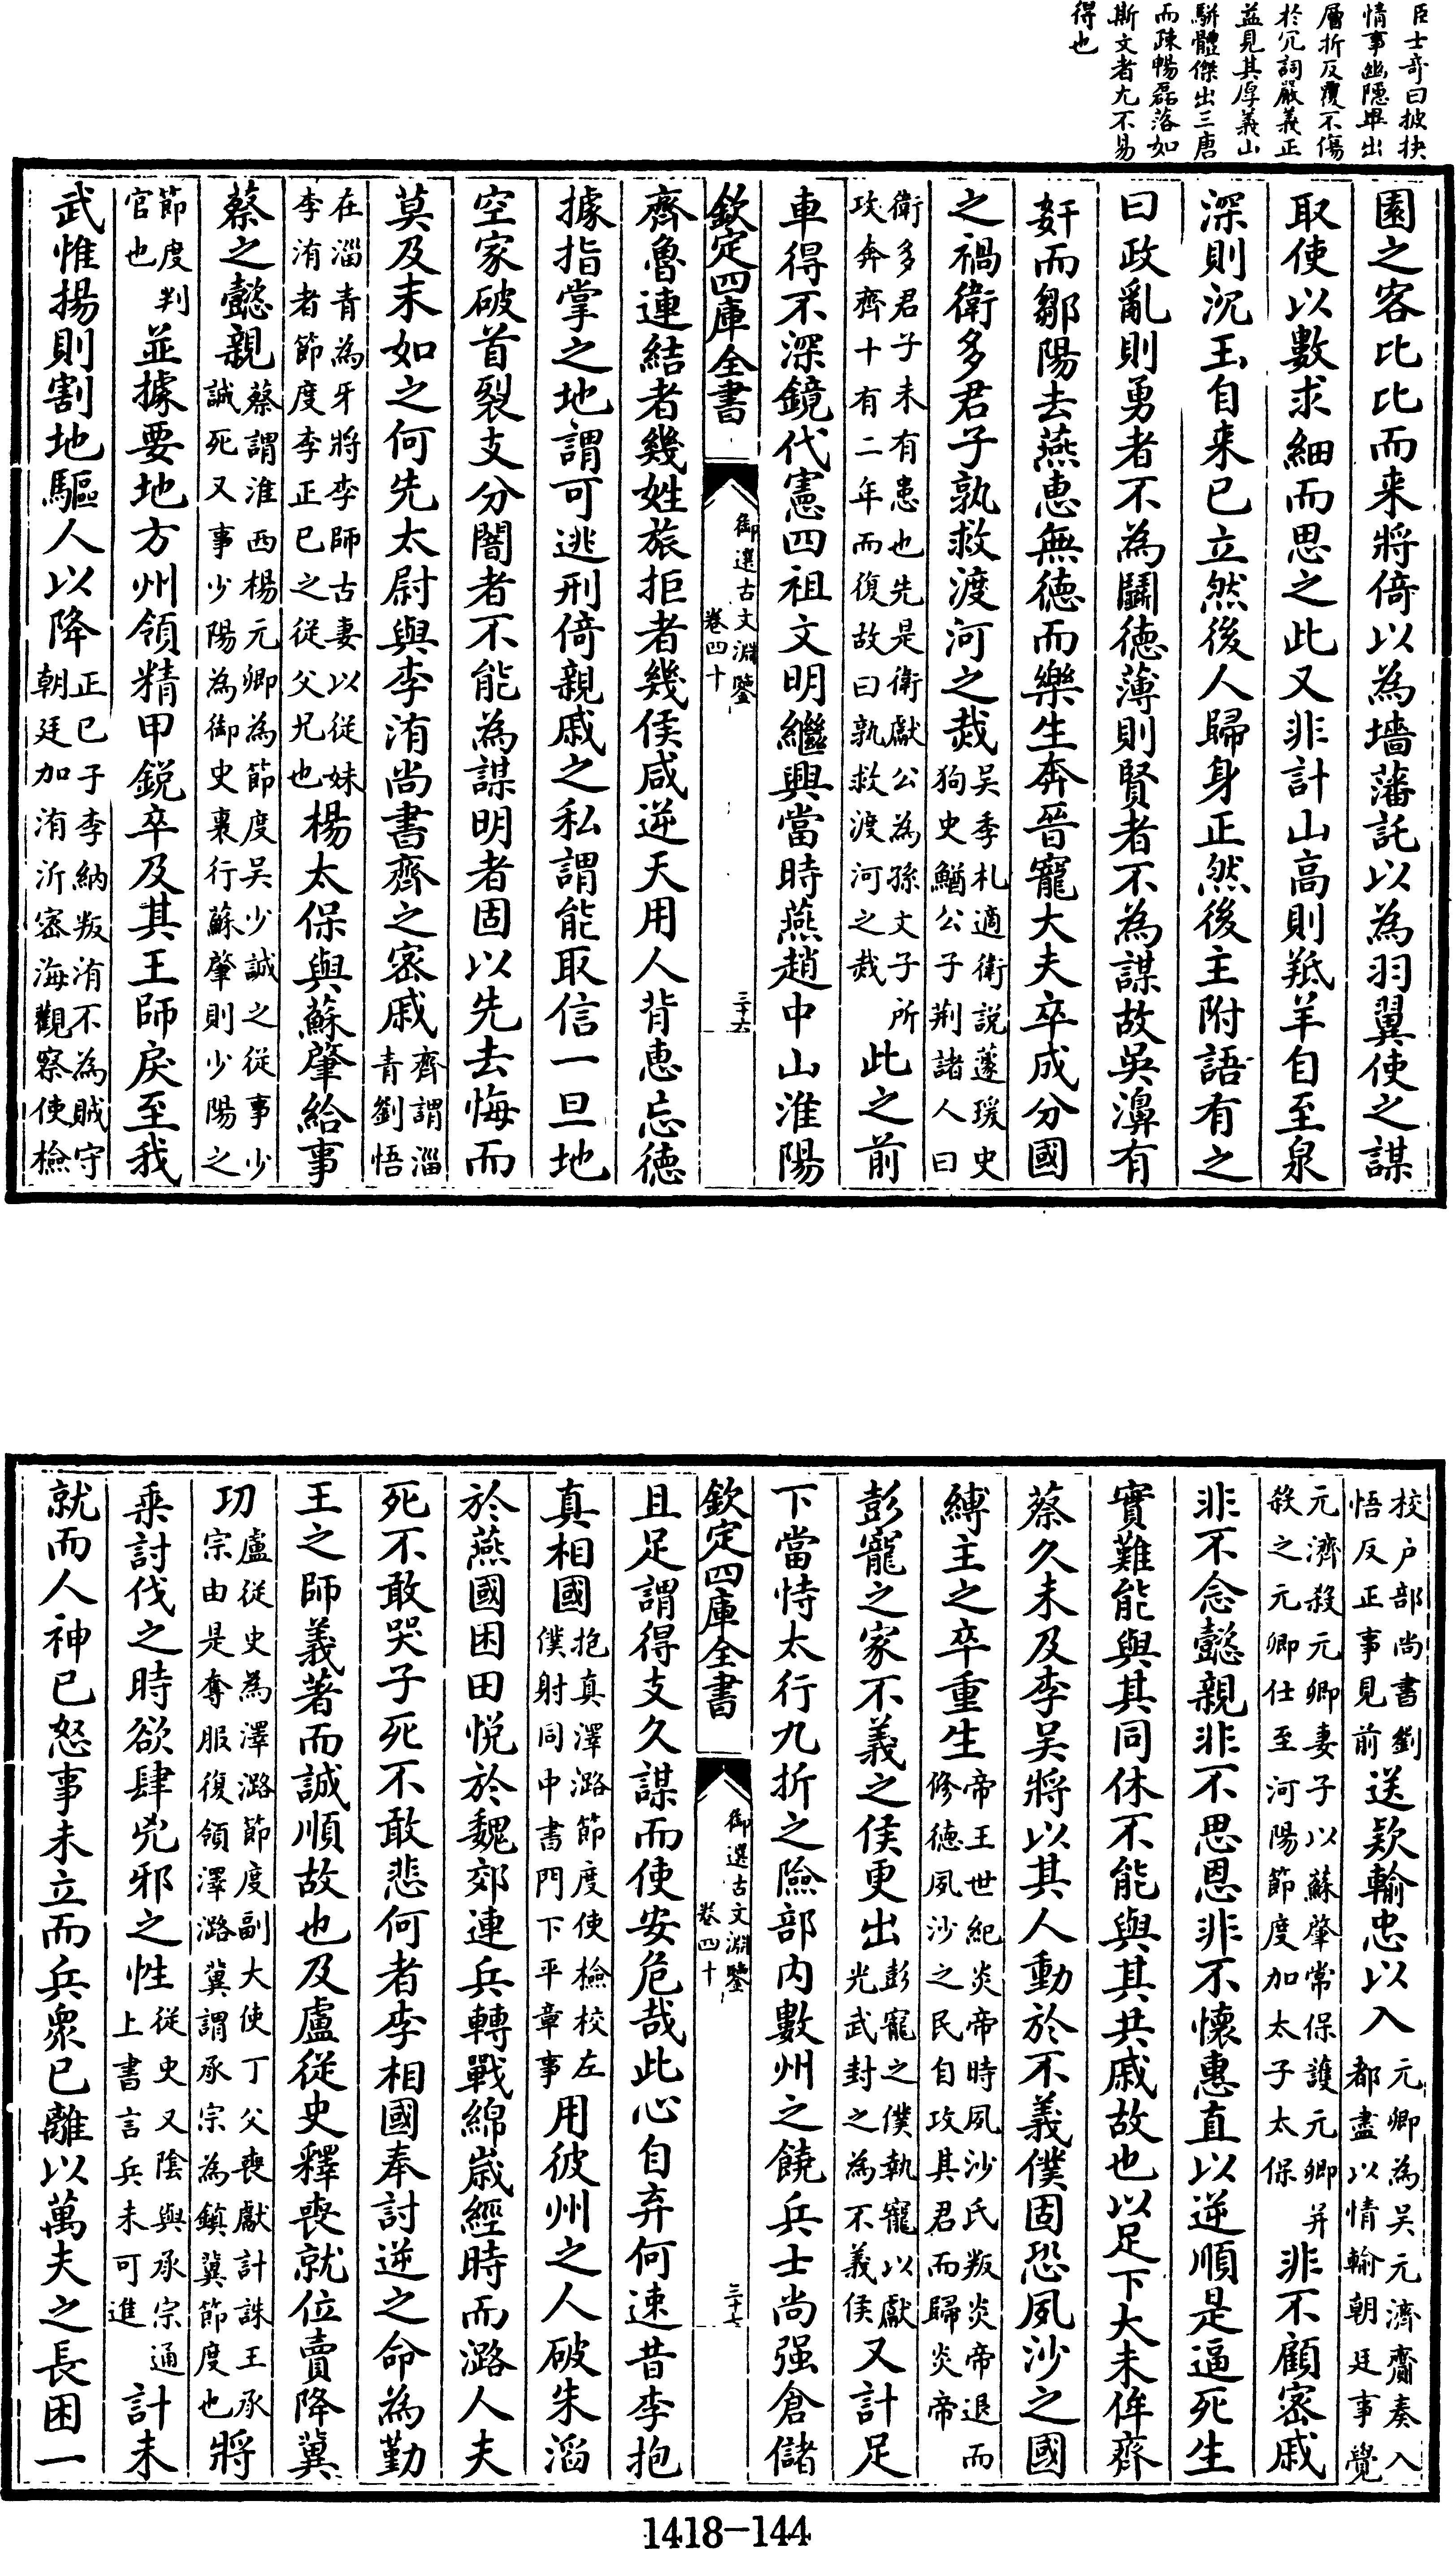 臣士奇曰披抉
情事幽隱畢出
層折反覆不傷
於冗詞嚴義正
益見其厚義山
駢體傑出三唐
而疎暢磊落如
斯文者尤不易
得也
園之客比比而来將倚以為墻藩託以為羽翼使之謀
取使以數求細而思之此又非計山高則羝羊自至泉
深則沉玉自来已立然後人歸身正然後主附語有之
曰政亂則勇者不為鬬徳薄則賢者不為謀故吳濞有
奸而鄒陽去燕恵無徳而樂生奔晉寵大夫卒成分國
之禍衛多君子孰救渡河之烖吴季札適衛説蘧瑗史狗史鰌公子荆諸人曰
衛多君子未有患也先是衛獻公為孫文子所攻奔齊十有二年而復故曰孰救渡河之烖此之前
車得不深鏡代憲四祖文明繼興當時燕趙中山淮陽
欽定四庫全書 御選古文淵鑒 卷四十 三十六
齊魯連結者幾姓旅拒者幾侯咸逆天用人背恵忘徳
據指掌之地謂可逃刑倚親戚之私謂能取信一旦地
空家破首裂支分闇者不能為謀明者固以先去悔而
莫及末如之何先太尉與李洧尚書齊之宻戚齊謂淄青劉悟
在淄青為牙將李師古妻以從妹李洧者節度李正已之從父兄也楊太保與蘇肇給事
蔡之懿親蔡謂淮西楊元卿為節度吴少誠之從事少誠死又事少陽為御史裏行蘇肇則少陽之
節度判官也並據要地方州領精甲鋭卒及其王師戾至我
武惟揚則割地驅人以降正已子李納叛洧不為賊守朝廷加洧沂宻海觀察使檢
校户部尚書劉悟反正事見前送欵輸忠以入元卿為吴元濟齎奏入都盡以情輸朝廷事覺
元濟殺元卿妻子以蘇肇常保護元卿并殺之元卿仕至河陽節度加太子太保非不顧宻戚
非不念懿親非不思恩非不懷惠直以逆順是逼死生
實難能與其同休不能與其共戚故也以足下大未侔齊
蔡久未及李吴將以其人動於不義僕固恐夙沙之國
縛主之卒重生帝王世紀炎帝時夙沙氏叛炎帝退而修徳夙沙之民自攻其君而歸炎帝
彭寵之家不義之侯更出彭寵之僕執寵以獻光武封之為不義侯又計足
下當恃太行九折之險部内數州之饒兵士尚强倉儲
欽定四庫全書 御選古文淵鑒 卷四十 三十七
且足謂得支久謀而使安危哉此心自弃何速昔李抱
真相國抱真澤潞節度使檢校左僕射同中書門下平章事用彼州之人破朱滔
於燕國困田悦於魏郊連兵轉戰綿嵗經時而潞人夫
死不敢哭子死不敢悲何者李相國奉討逆之命為勤
王之師義著而誠順故也及盧從史釋喪就位賣降冀
功盧從史為澤潞節度副大使丁父喪獻計誅王承宗由是奪服復領澤潞冀謂承宗為鎮冀節度也將
乘討伐之時欲肆兇邪之性從史又陰與承宗通上書言兵未可進計未
就而人神已怒事未立而兵衆已離以萬夫之長困一
1418-144